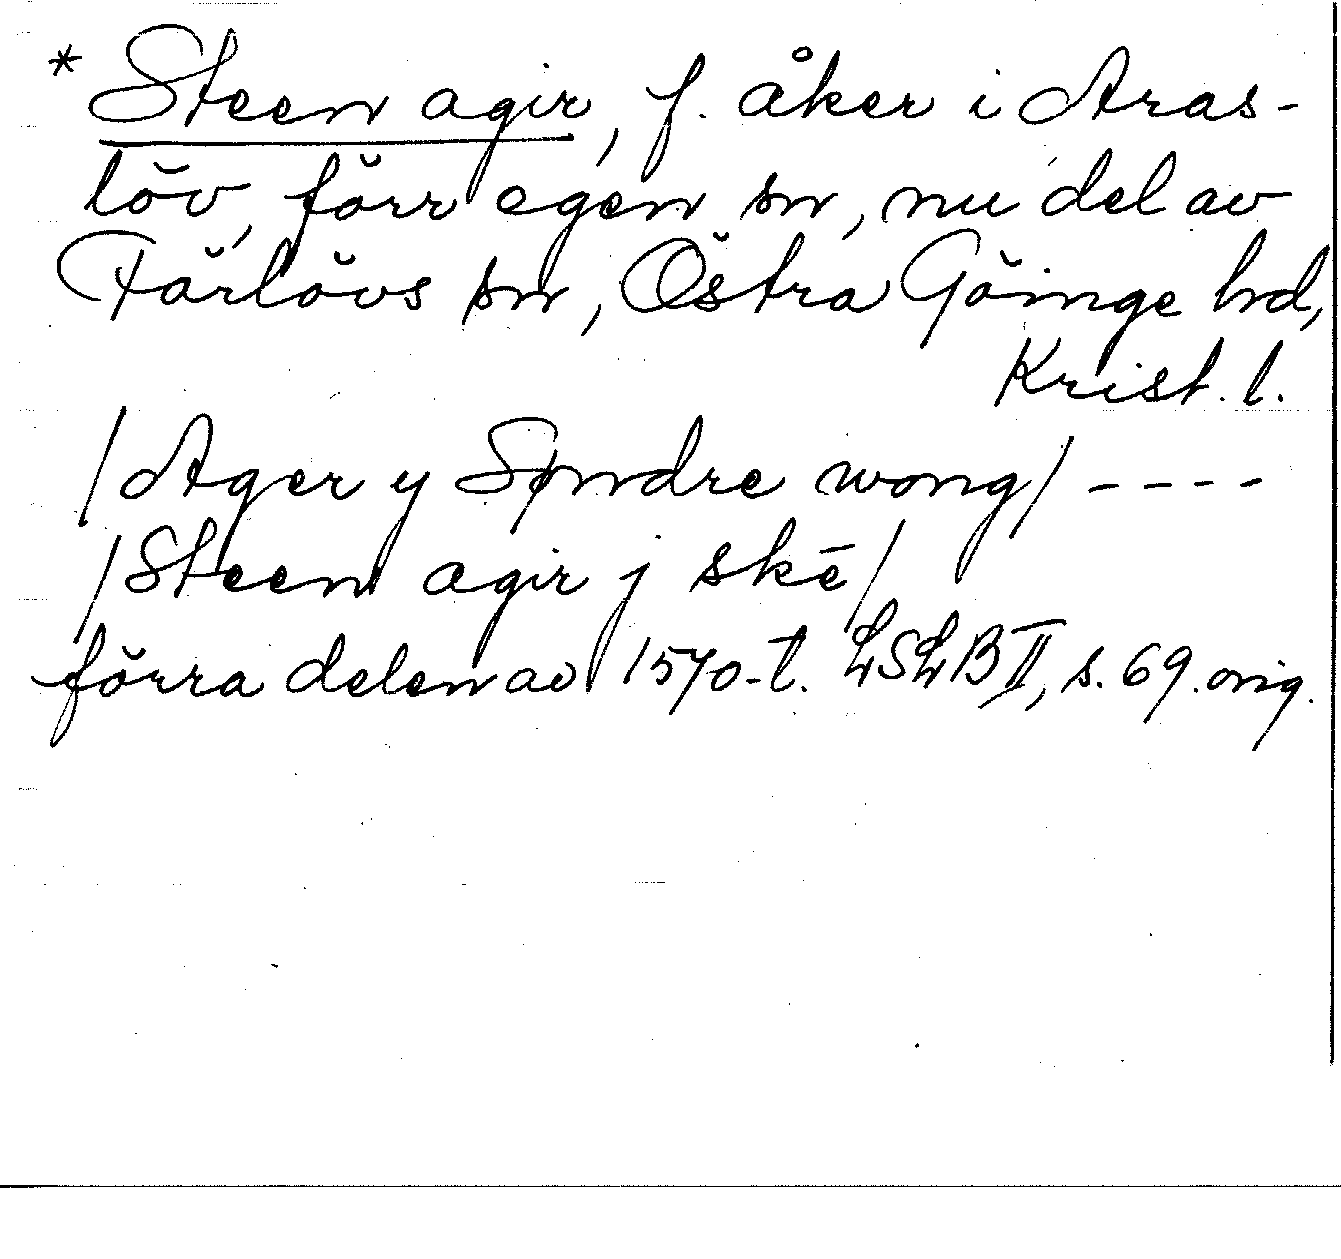 * Steen agir, f. åker i Aras-
löv, förr egen sn, nu del av
Färlövs sn, Östra Göinge hd,
Krist. l.
/Ager y Søndre wong/ ----
/Steen agir j skē/
förra delen av 1570-t. LSLB II, s. 69. orig.